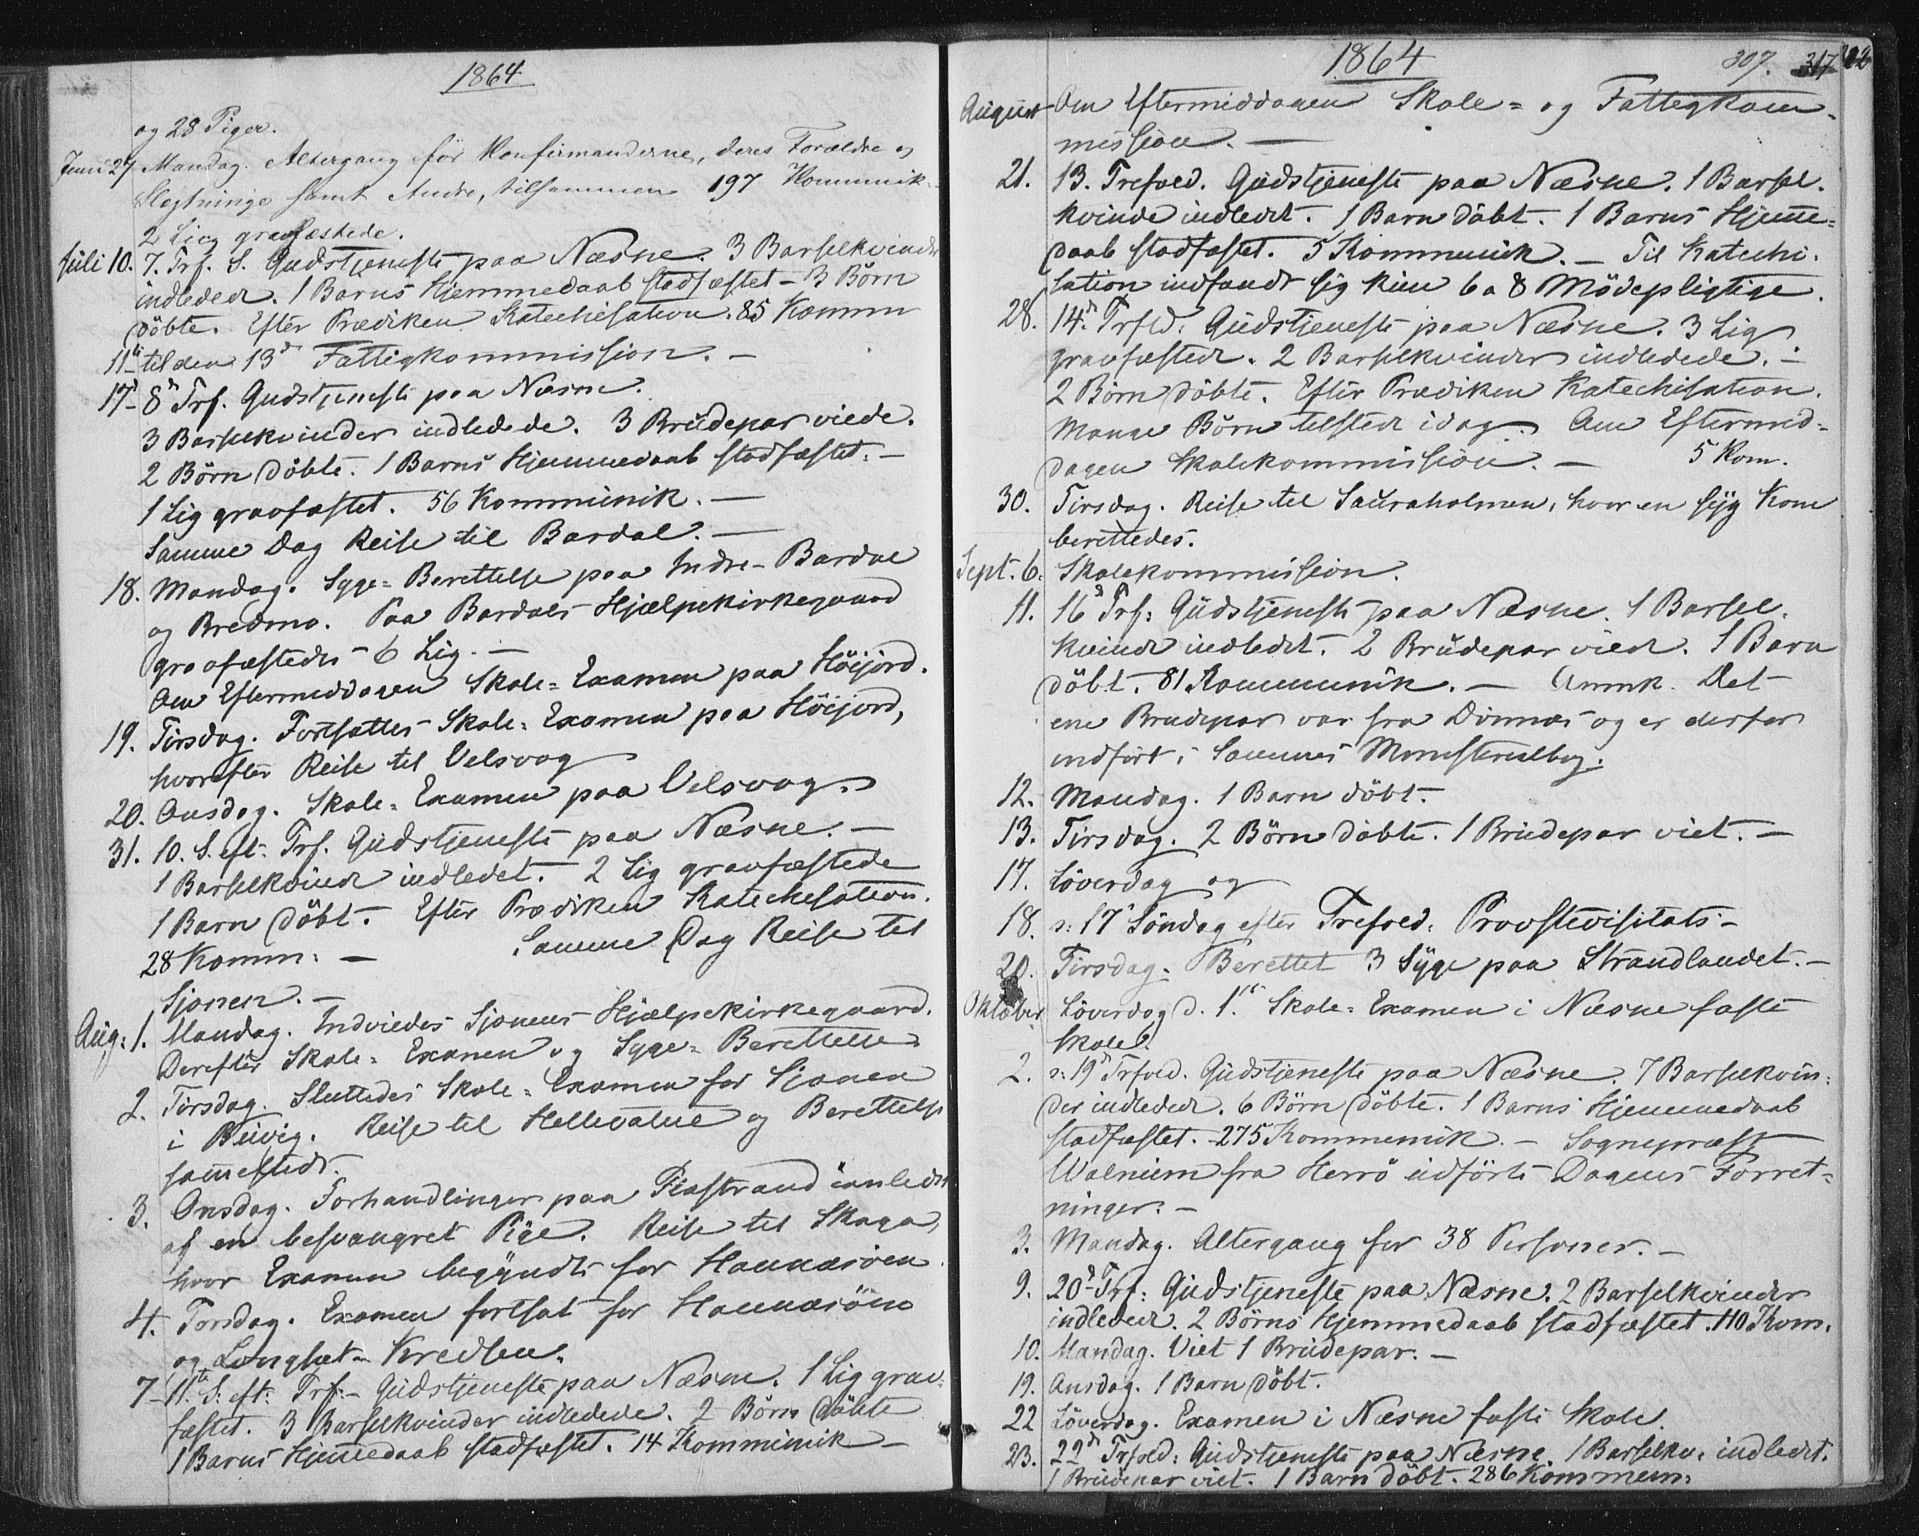 1864
og 28 Piger.
Juni 27 Mandag. Altergang for Konfirmanderne, deres Forældre og
Slegtninge samt Andre, tilsammen 197 Kommunik.
2 Lig gravfæstede.
Juli 10. 7. Trf. S. Gudstjeneste paa Næsne. 3 Barselkvinder
indledede. 1 Barns Hjemmedaab stadfæstet – 3 Børn
døbte. Efter Prædiken Katechisation. 85 Komm
11te til den 13d Fattigkommission. –
17d 8d Trf. Gudstjeneste paa Næsne.
3 Barselkvinder indledede. 3 Brudepar viede.
2 Børn døbte. 1 Barns Hjemmedaab stadfæstet. –
1 Lig gravfæstet. 56 Kommunik. –
Samme Dag Reise til Bardal. –
18. Mandag. Syge-Berettelse paa Indre-Bardal
og Bredmo. Paa Bardals Hjælpekirkegaard
gravfæstedes 6 Lig. –
Om Eftermiddagen Skole-Examen paa Høijord.
19. Tirsdag. Fortsattes Skole-Examen paa Høijord,
hvorefter Reise til Velsvog
20. Onsdag. Skole-Examen paa Velsvog.
31. 10. S. eft. Trf. Gudstjeneste paa Næsne. –
1 Barselkvinde indledet. 2 Lig gravfæstede
1 Barn døbt. Efter Prædiken Katechisation.
28 Komm. – Samme Dag Reise til
Sjonen. –
Aug: 1. Mandag. Indviedes Sjonens Hjælpekirkegaard.
Derefter Skole-Examen og Syge-Berettelse
2. Tirsdag. Sluttedes Skole-Examen for Sjonen
i Beivig. Reise til Hellevatne og Berettelse
sammesteds.
3. Onsdag. Forhandlinger paa Flostrand i anledn
af en besvangret Pige. Reise til Skaga,
hvor Examen begyndte for Hannesøen.
4. Torsdag. Examen fortsat for Hannesøen
og Langset-Kredsen.
7– 11te S. eft. Trf. – Gudstjeneste paa Næsne. 1 Lig grav-
fæstet. 3 Barselkvinder indledede. 2 Børn døbte
1 Barns Hjemmedaab stadfæstet. 14 Kommunik –
1864 307. 317
August Om Eftermiddagen Skole- og Fattigkom-
mission. –
21. 13. Trefold. Gudstjeneste paa Næsne. 1 Barsel-
kvinde indledet. 1 Barn døbt. 1 Barns Hjemme-
daab stadfæstet. 5 Kommunik. – Til Katechi-
sation indfandt sig kun 6 a 8 Mødepligtige.
28. 14d Trfld. Gudstjeneste paa Næsne. 3 Lig
gravfæstede. 2 Barselkvinder indledede. –
2 Børn døbte. Efter Prædiken Katechisation.
Mange Børn tilstede idag. Om Eftermid-
dagen Skolekommission. – 5 Kom.
30. Tirsdag. Reise til Sauraholmen, hvor en syg Kone
berettedes.
Sept. 6. Skolekommission.
11. 16d Trf. Gudstjeneste paa Næsne. 1 Barsel-
kvinde indledet. 2 Brudepar viede. 1 Barn
døbt. 81 Kommunik. – Anmk. Det
ene Brudepar var fra Dønnæs og er derfor
indført i Sammes Ministerialbog.
12. Mandag. 1 Barn døbt.
13. Tirsdag. 2 Børn døbte. 1 Brudepar viet. –
17. Løverdag og
18. s: 17d Søndag efter Trefold. Provstevisitats –
20. Tirsdag. Berettet 3 Syge paa Strandlandet. –
Oktober Løverdag d. 1ste Skole-Examen i Næsne faste
Skole.
2. s: 19d Trfold. Gudstjeneste paa Næsne. 7 Barselkvin-
der indledede. 6 Børn døbte. 1 Barns Hjemmedaab
stadfæstet. 275 Kommunik. – Sognepræst
Walnum fra Herrø udførte Dagens Forret-
ninger. –
3. Mandag. Altergang for 38 Personer. –
9. 20d Trf: Gudstjeneste paa Næsne. 2 Barselkvinder
indledede. 2 Børns Hjemmedaab stadfæstet. 110 Kom.
10. Mandag. Viet 1 Brudepar. –
19. Onsdag. 1 Barn døbt.
22 Løverdag. Examen i Næsne faste Skole.
23. 22d Trfold: Gudstjeneste paa Næsne. 1 Barselkv. indledet.
1 Brudepar viet. 1 Barn døbt. 286 Kommun.